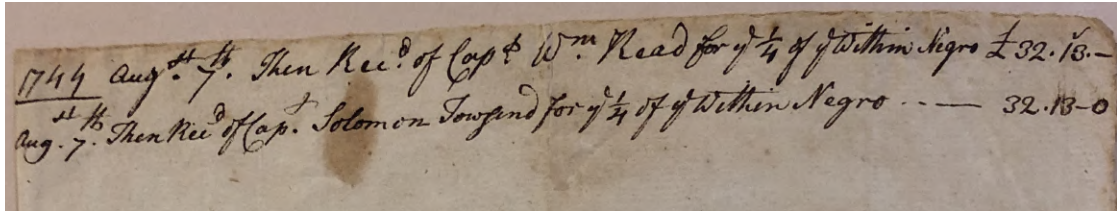 1744 Augst. 7th. Then Recd. of Capt. Wm. Read for ye 1/4 of ye Within Negro £32.13.–
Augst. 7th. Then Recd of Capt. Solomon Townsend for ye 1/4 of ye Within Negro - - — 32.13–0